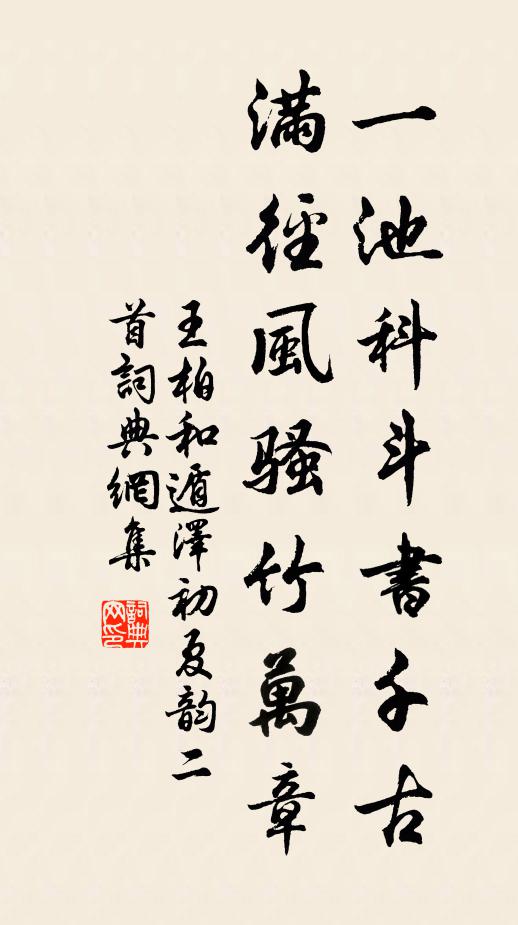 一池科斗書千古
滿徑風騷竹萬章
王柏和遁澤初夏韵二
首詞典網集
詞典
网印